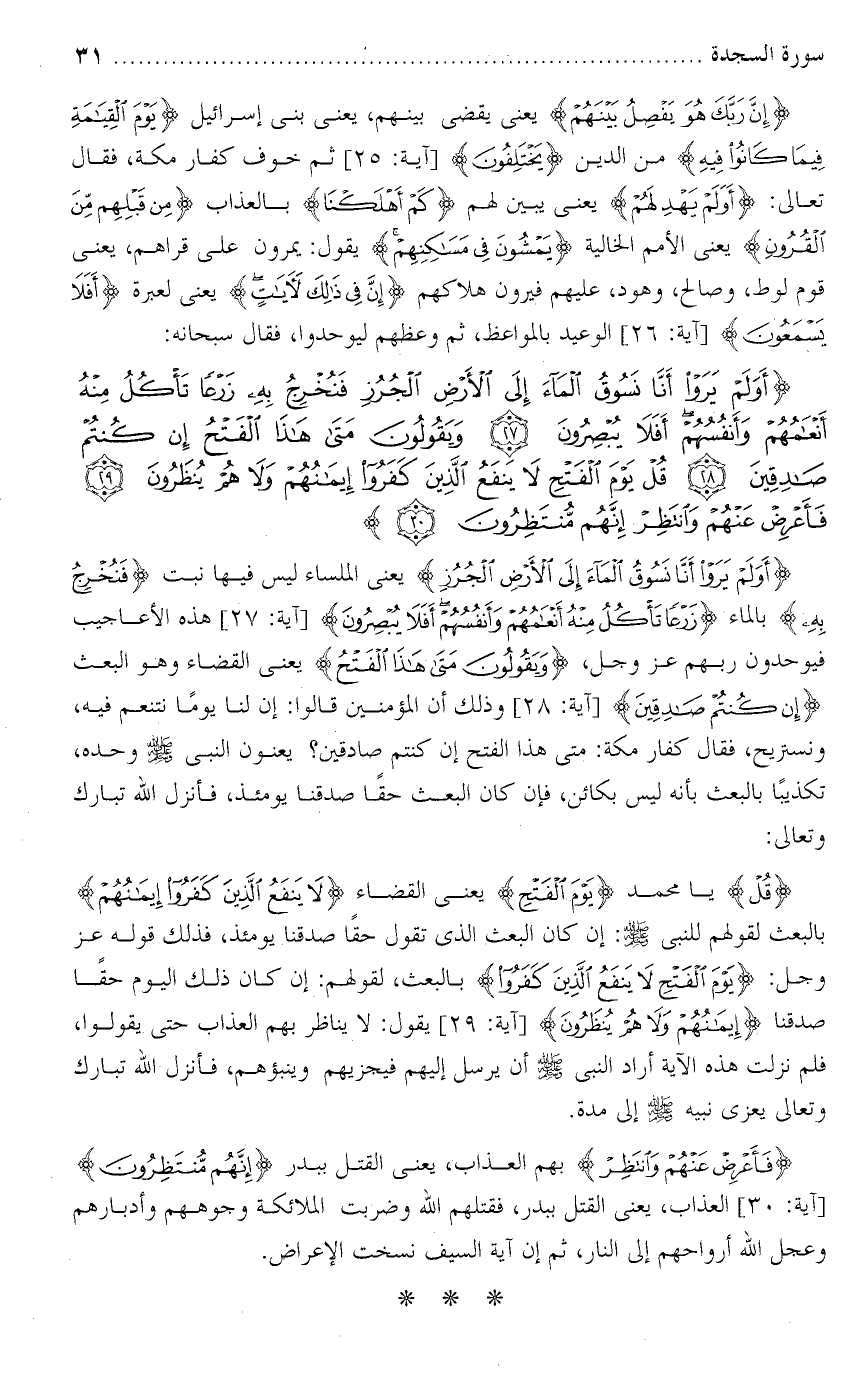 سورة السجدة ........................................................................ ٣١
﴿إِنَّ رَبَّكَ هُوَ يَفْصِلُ بَيْنَهُمْ﴾ يعنى يقضى بينهم، يعنى بنى إسرائيل ﴿يَوْمَ الْقِيَامَةِ
فِيمَا كَانُوا فِيهِ﴾ من الدين ﴿يَخْتَلِفُونَ﴾ [آية: ٢٥] ثم خوف كفار مكة، فقال
تعالى: ﴿أَوَلَمْ يَهْدِ لَهُمْ﴾ يعنى يبين لهم ﴿كَمْ أَهْلَكْنَا﴾ بالعذاب ﴿مِن قَبْلِهِم مِّنَ
الْقُرُونِ﴾ يعنى الأمم الخالية ﴿يَمْشُونَ فِى مَسَاكِنِهِمْ﴾ يقول: يمرون على قراهم، يعنى
قوم لوط، وصالح، وهود، عليهم فيرون هلاكهم ﴿إِنَّ فِى ذَلِكَ لَآيَاتٍ﴾ يعنى لعبرة ﴿أَفَلَا
يَسْمَعُونَ﴾ [آية: ٢٦] الوعيد بالمواعظ، ثم وعظهم ليوحدوا، فقال سبحانه:
﴿أَوَلَمْ يَرَوْا أَنَّا نَسُوقُ الْمَاءَ إِلَى الْأَرْضِ الْجُرُزِ فَنُخْرِجُ بِهِ زَرْعًا تَأْكُلُ مِنْهُ
أَنْعَامُهُمْ وَأَنفُسُهُمْ أَفَلَا يُبْصِرُونَ ٢٧ وَيَقُولُونَ مَتَى هَذَا الْفَتْحُ إِن كُنتُمْ
صَادِقِينَ ٢٨ قُلْ يَوْمَ الْفَتْحِ لَا يَنفَعُ الَّذِينَ كَفَرُوا إِيمَانُهُمْ وَلَا هُمْ يُنظَرُونَ ٢٩
فَأَعْرِضْ عَنْهُمْ وَانتَظِرْ إِنَّهُم مُّنتَظِرُونَ ٣٠ ﴾
﴿أَوَلَمْ يَرَوْا أَنَّا نَسُوقُ الْمَاءَ إِلَى الْأَرْضِ الْجُرُزِ﴾ يعنى الملساء ليس فيها نبت ﴿فَنُخْرِجُ
بِهِ﴾ بالماء ﴿زَرْعًا تَأْكُلُ مِنْهُ أَنْعَامُهُمْ وَأَنفُسُهُمْ أَفَلَا يُبْصِرُونَ﴾ [آية: ٢٧] هذه الأعاجيب
فيوحدون ربهم عز وجل، ﴿وَيَقُولُونَ مَتَى هَذَا الْفَتْحُ﴾ يعنى القضاء وهو البعث
﴿إِن كُنتُمْ صَادِقِينَ﴾ [آية: ٢٨] وذلك أن المؤمنين قالوا: إن لنا يومًا نتنعم فيه،
ونستريح، فقال كفار مكة: متى هذا الفتح إن كنتم صادقين؟ يعنون النبى ﷺ وحده،
تكذيبًا بالبعث بأنه ليس بكائن، فإن كان البعث حقًا صدقنا يومئذ، فأنزل الله تبارك
وتعالى:
﴿قُلْ﴾ يا محمد ﴿يَوْمَ الْفَتْحِ﴾ يعنى القضاء ﴿لَا يَنفَعُ الَّذِينَ كَفَرُوا إِيمَانُهُمْ﴾
بالبعث لقولهم للنبى ﷺ: إن كان البعث الذى تقول حقًا صدقنا يومئذ، فذلك قوله عز
وجل: ﴿يَوْمَ الْفَتْحِ لَا يَنفَعُ الَّذِينَ كَفَرُوا﴾ بالبعث، لقولهم: إن كان ذلك اليوم حقًا
صدقنا ﴿إِيمَانُهُمْ وَلَا هُمْ يُنظَرُونَ﴾ [آية: ٢٩] يقول: لا يناظر بهم العذاب حتى يقولوا،
فلم نزلت هذه الآية أراد النبى ﷺ أن يرسل إليهم فيجزيهم وينبؤهم، فأنزل الله تبارك
وتعالى يعزى نبيه ﷺ إلى مدة.
﴿فَأَعْرِضْ عَنْهُمْ وَانتَظِرْ﴾ بهم العذاب، يعنى القتل ببدر ﴿إِنَّهُم مُّنتَظِرُونَ﴾
[آية: ٣٠] العذاب، يعنى القتل ببدر، فقتلهم الله وضربت الملائكة وجوههم وأدبارهم
وعجل الله أرواحهم إلى النار، ثم إن آية السيف نسخت الإعراض.
* * *